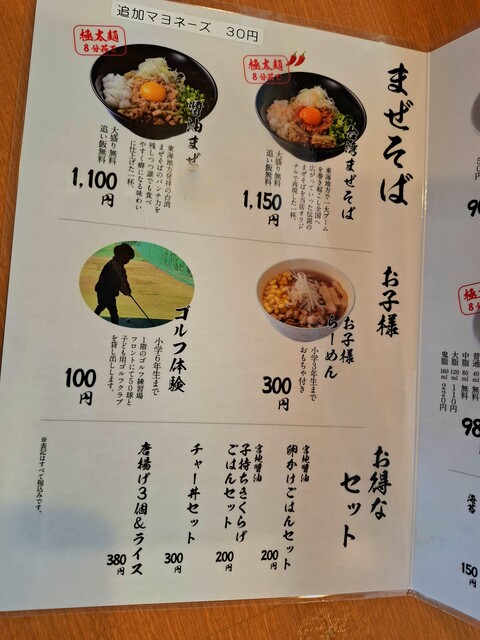 追加マヨネーズ 30円
まぜそば
極太麺
8分茹で
台湾まぜそば
東海地方で一大ブーム
を巻き起こし全国へ
広がっていった伝説の
まぜそばを当店オリジ
ナルで再現した一杯。
大盛り無料
追い飯無料
1,150円
極太麺
8分茹で
醤油まぜ
東海地方発祥の台湾
まぜそばのパンチ力を
残しつつ誰でも食べ
やすく癖になる味わい
に仕上げた一杯。
大盛り無料
追い飯無料
1,100円
お子様
お子様
らーめん
小学3年生まで
おもちゃ付き
300円
ゴルフ体験
小学6年生まで
1階のゴルフ練習場
フロントにて50球と
子ども用ゴルフクラブ
を貸し出しします。
100円
お得な
セット
宮地醤油
卵かけごはんセット
200円
宮地醤油
子持ちきくらげ
ごはんセット
200円
チャー丼セット
300円
唐揚げ3個&ライス
380円
※表記はすべて税込みです。
極太
8分
普通 40ml 無料
中脂 80ml 無料
大脂 120ml 110円
鬼脂 160ml 220円
海苔
150円